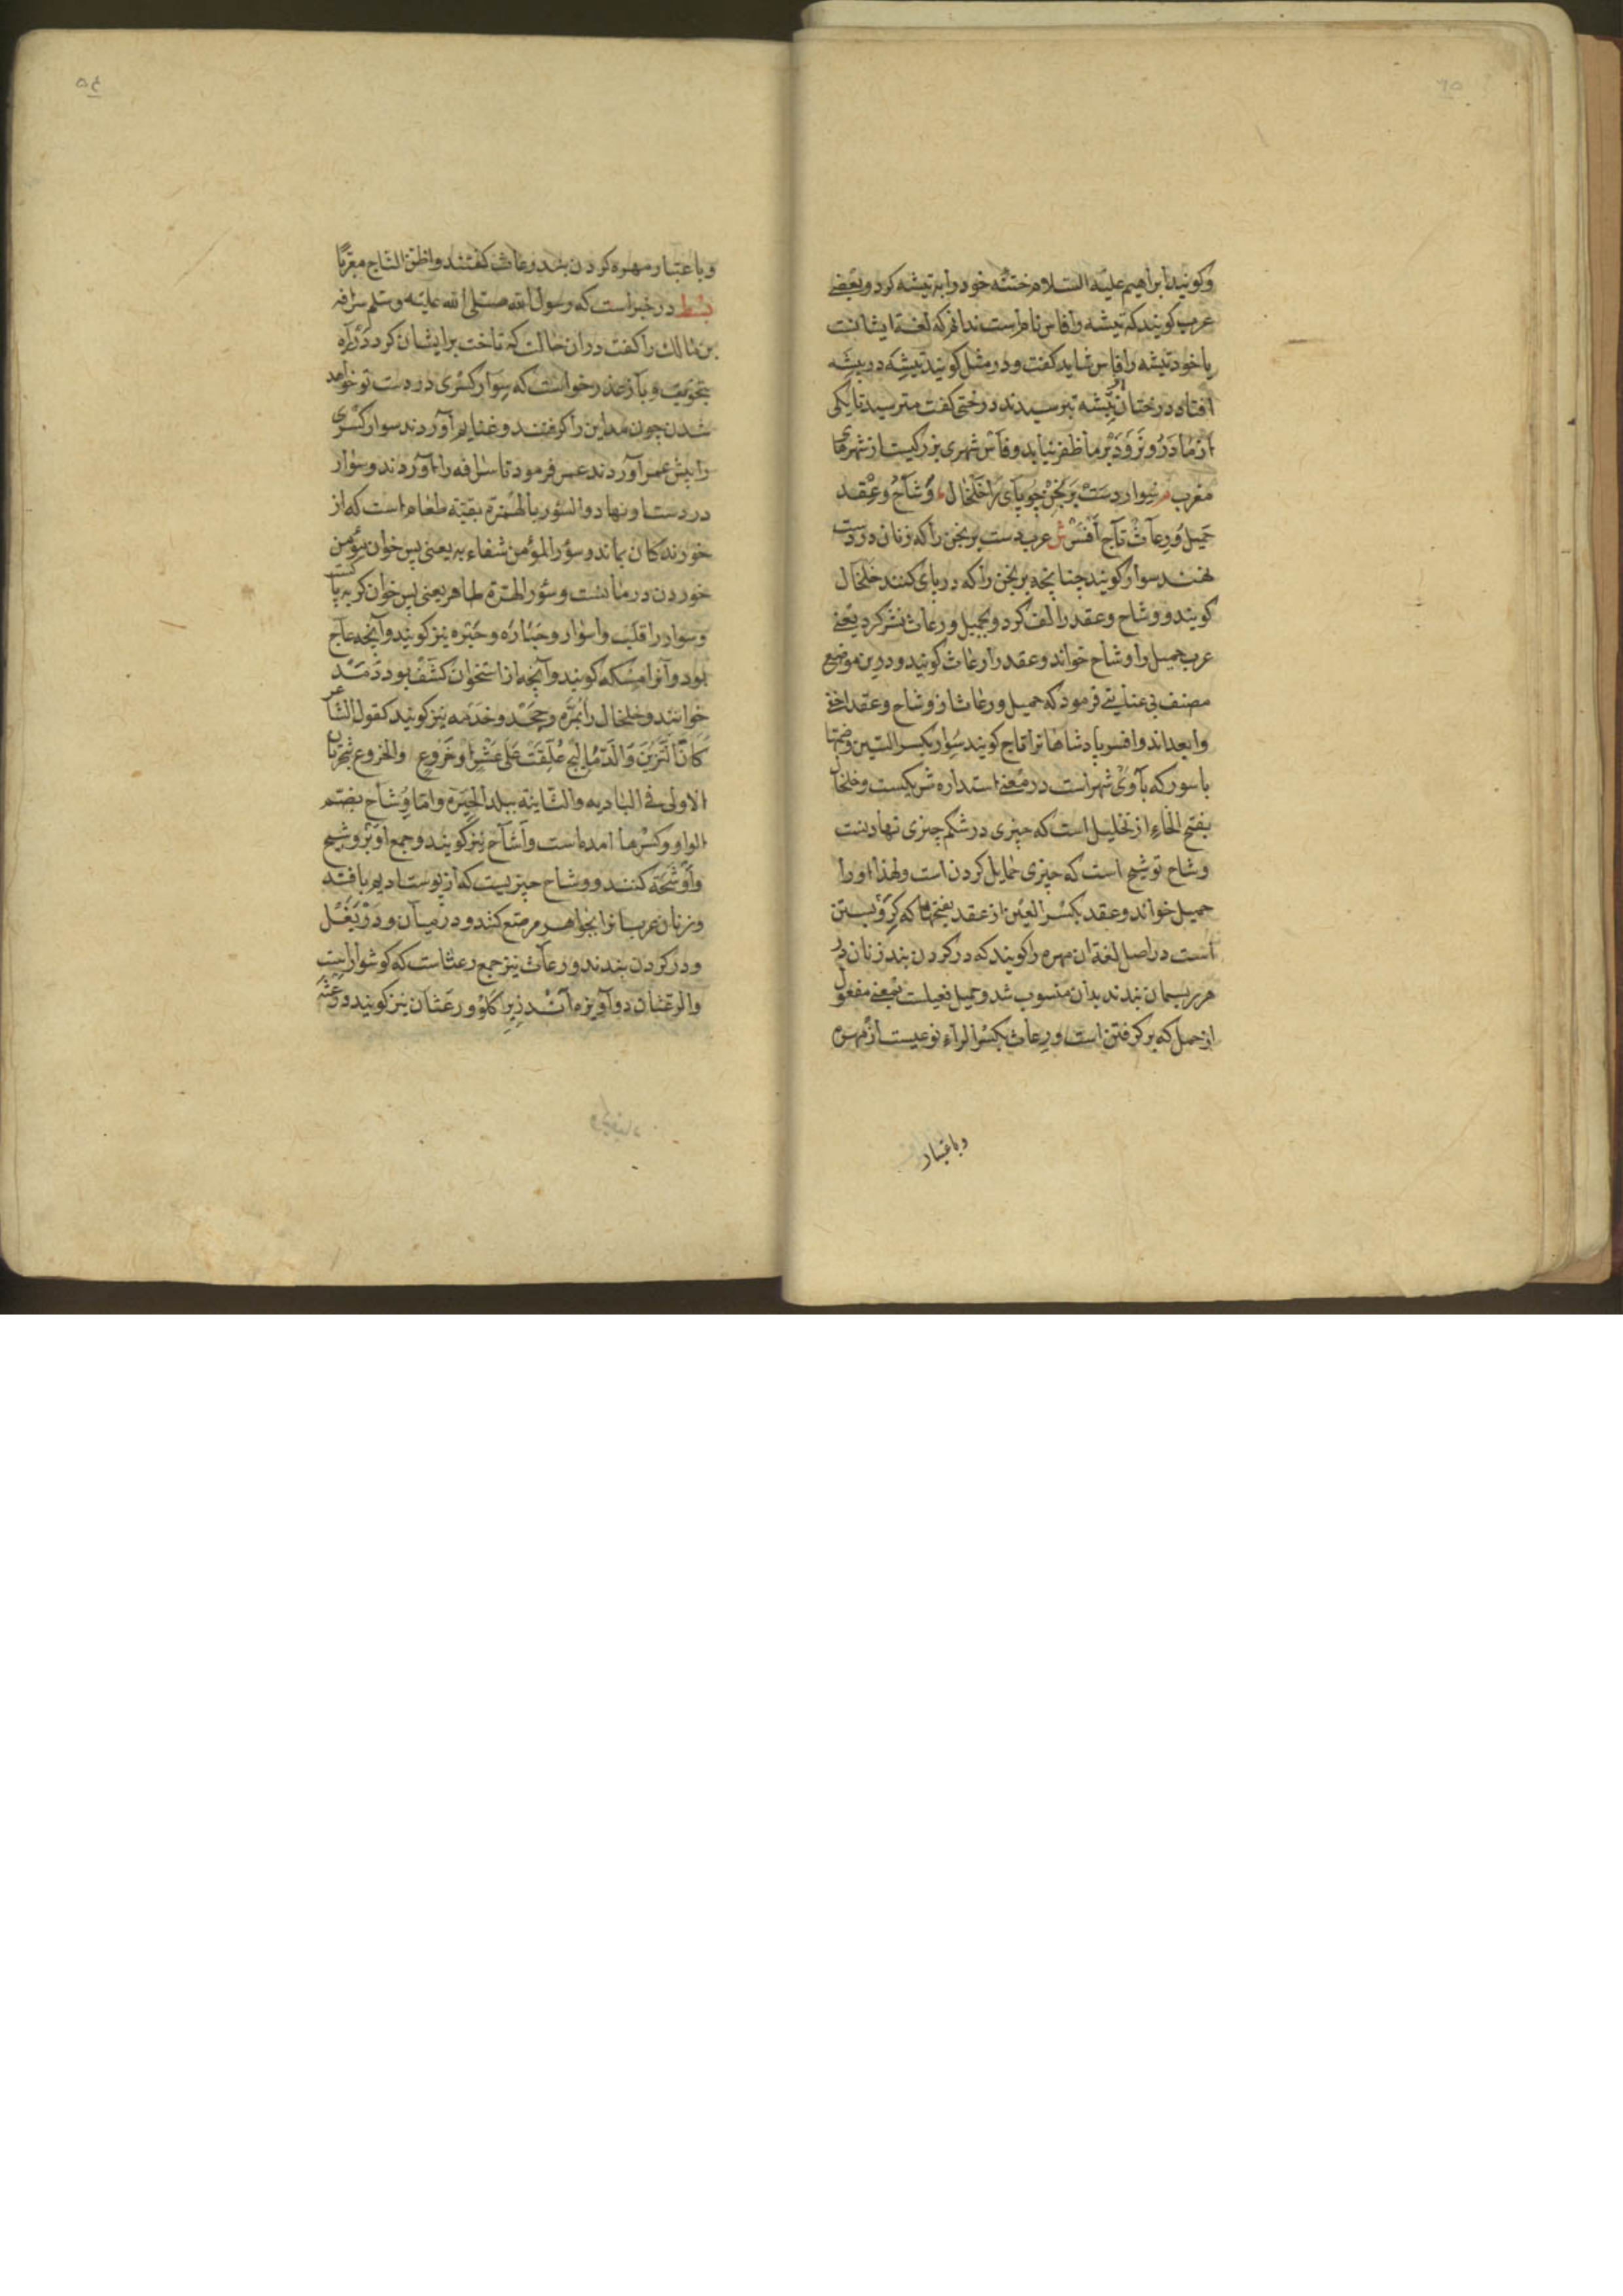 وکویند ابراهیم علیه السلام ختنه خود را به تیشه کرد و بعضے
عرب کویند که تیشه را فاس نام است ندانم که لغة ایشانست
یا خود تیشه را فاس شاید کفت و در مثل کویند تیشه در بیشه
افتاد درختان بیشه بترسیدند درختی کفت مترسید تا یکی
از ما در و نرود بر ما ظفر نیابد و فاس شهری بزرکیست از شهرهای
مغرب م سوار دست برنجن چو پای را خلخال وشاح و عقد
حمیل و رعاث تاج افسر ش عرب دست برنجن را که زنان در دست
نهند سوار کویند چنانچه برنجن را که در پای کنند خلخال
کویند و وشاح و عقد را لف کرد و بحمیل و رعاث نشر کرد یعنے
عرب حمیل را وشاح خواند و عقد را رعاث کویند و درین موضع
مصنف بی عنایتے فرمود که حمیل و رعاث از وشاح و عقد اخفے
وابعداند و افسر پادشاهانرا تاج کویند سوار بکسر السین و ضمها
با سور که باوی شهرست در معنے استداره شریکست و خلخال
بفتح الخاء از تخلیل است که چیزی در شکم چیزی نهادنست
وشاح توشیح است که چیزی حمایل کردن است و لهذا او را
حمیل خواند و عقد بکسر العین از عقد بفتحها که کره بستن
است در اصل لغة ان مهره را کویند که در کردن بند زنان در
هر ریسمان بندند بدان منسوب شد و حمیل فعیلست بمعنے مفعول
از حمل که بر کرفتن است و رعاث بکسر الراء نوعیست از مهره
وباعتبار
وباعتبار مهره کردن بند رعاث کفتند واظن التاج معربا
بسط در خبر است که رسول الله صلی الله علیه وسلم سراقه
بن مالک را کفت دران حالت که تاخت بر ایشان کرد
سوار کسری در دست تو خواهد
شدن چون مداین را کرفتند و غنایم آوردند سوار کسری
را پیش عمر آوردند عمر فرمود تا سراقه را آوردند و سوار
در دست او نهاد والسؤر بالهمزة بقیة طعام است که از
خورندکان بماند وسؤر المؤمن شفاء به یعنی پس خوان مؤمن
خوردن درمانست وسؤر الهرة طاهر یعنی پس خوان کربه پاکست
وسوار را قلب و اسوار و جباره و جبیره نیز کویند و آنچه عاج
بود و آنرا مسکه کویند و آنچه از استخوان کشف بود
خوانند و خلخال را بره و حجل و خدمه نیز کویند کقول الشاعر
کان البرین والدمالیج علقت علی عشر او خروع والخروع شجرتان
الاولی فی البادیه والثانیة ببلد الحیره واما وشاح بضم
الواو وکسرها امده است و اشاح نیز کویند و جمع او بر وشح
واوشحة کنند و وشاح چیزیست که از پوست ادیم بافند
و زنان عرب انرا بجواهر مرصع کنند و در میان و در بغل
و در کردن بندند و رعاث نیز جمع رعثا ست که کوشوار است
والرعثان دو آویزه زیر کلو و رعثان نیز کویند و رعثه